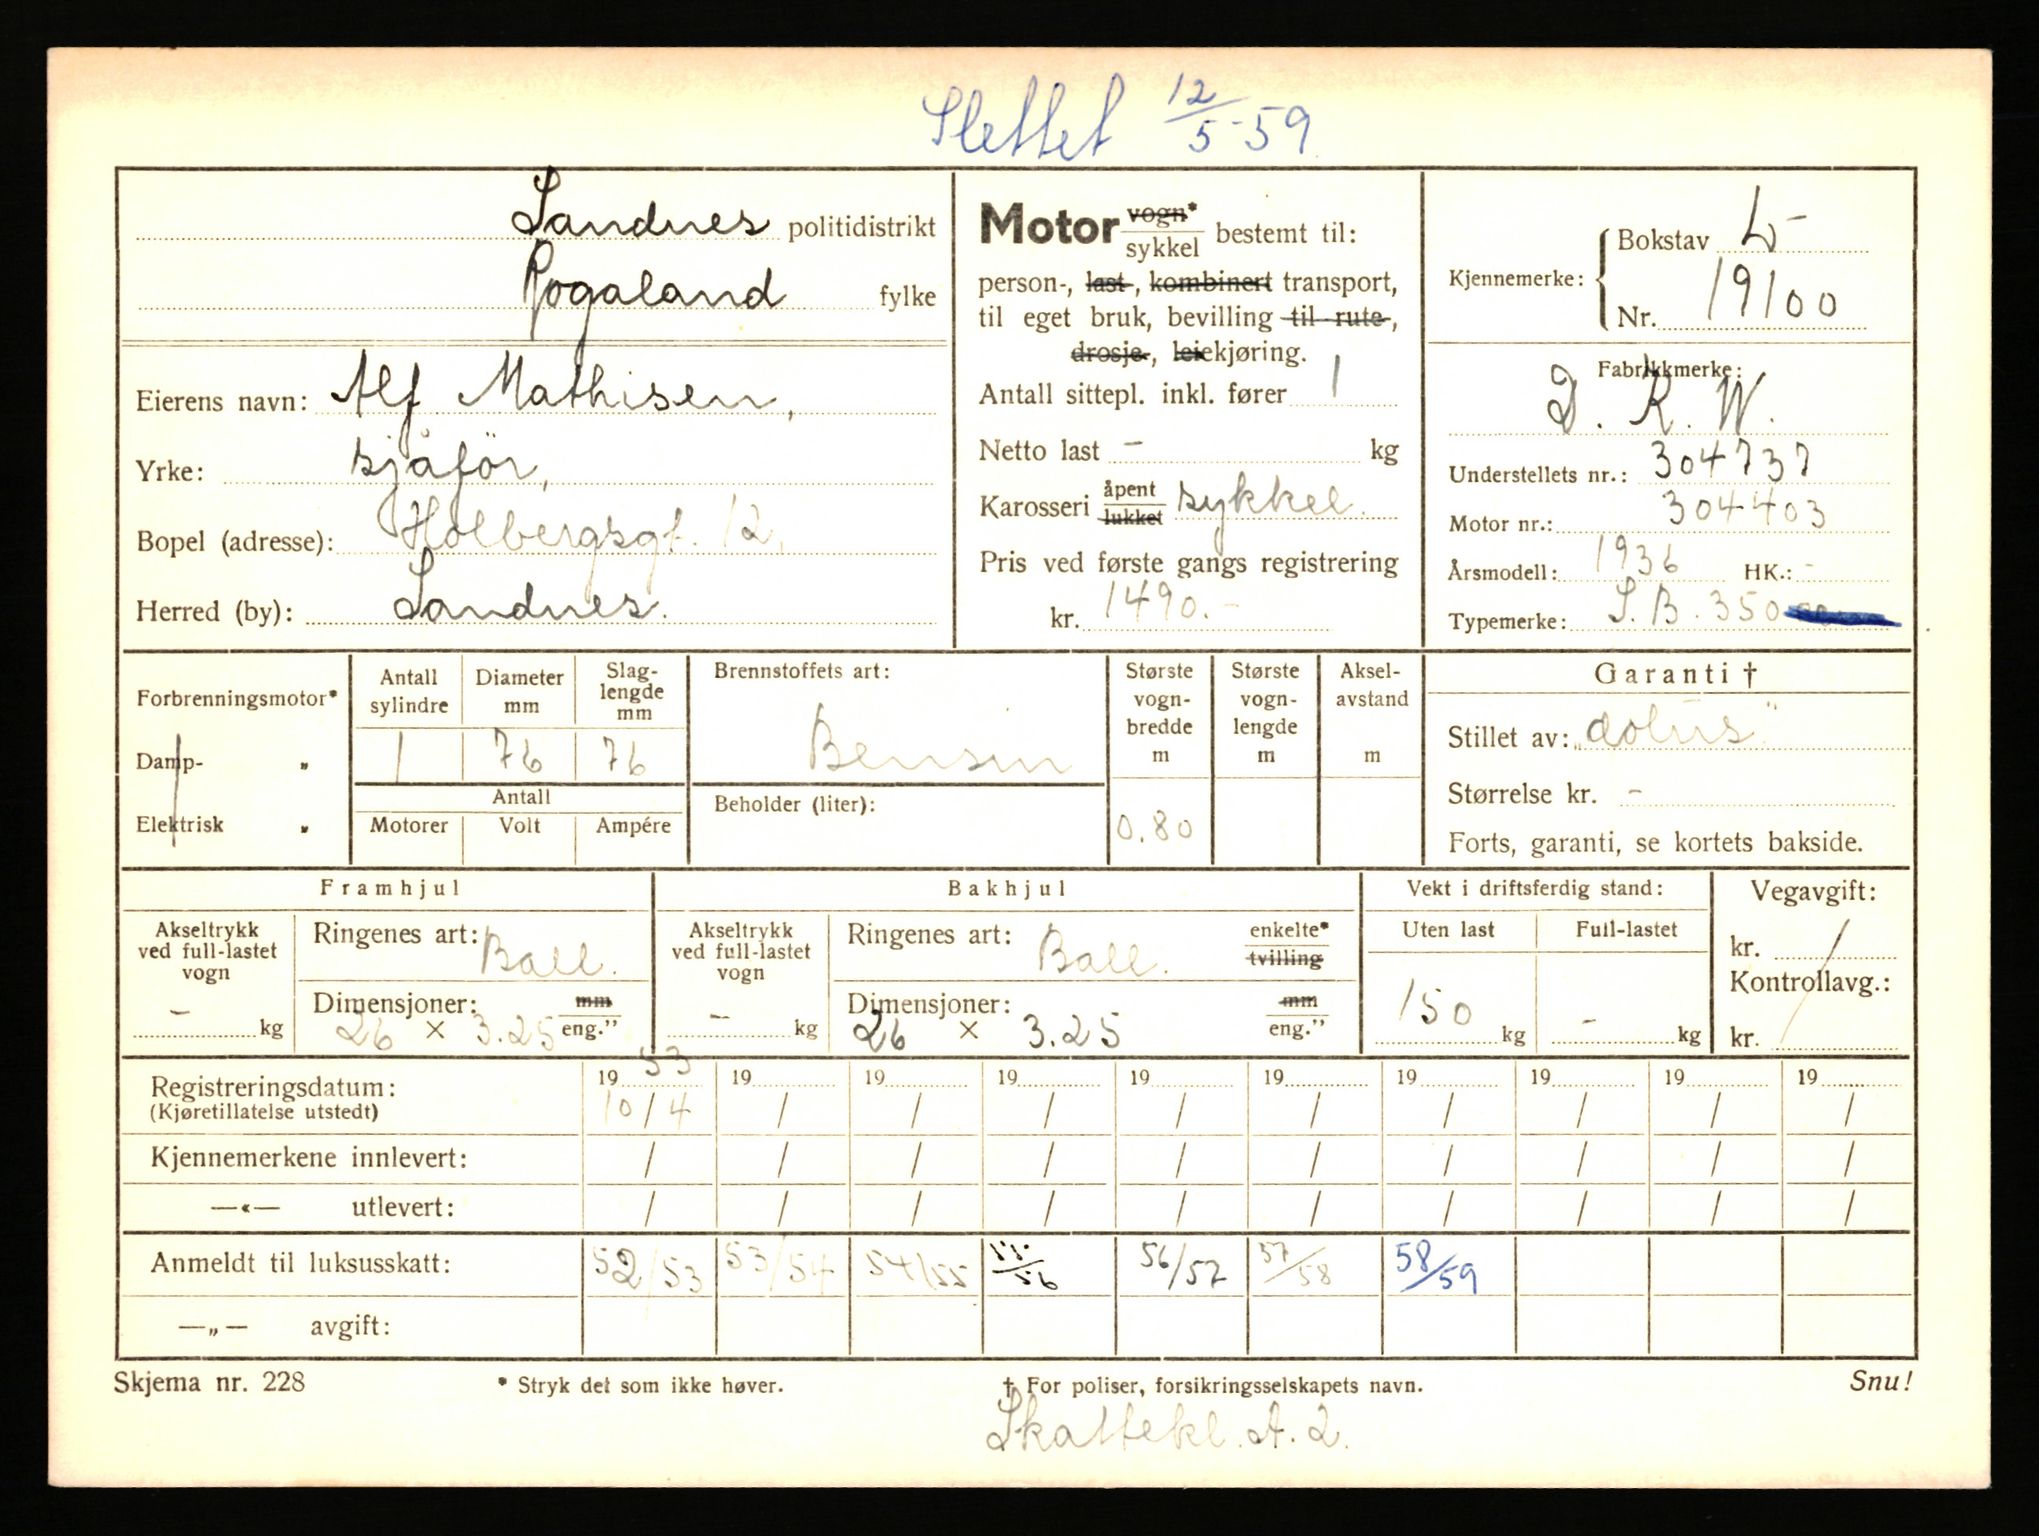 Slettet 12/5-59
Sandnes politidistrikt
Rogaland fylke
Eierens navn: Alf Mathisen,
Yrke: sjåför,
Bopel (adresse): Holbergsgt. 12,
Herred (by): Sandnes.
Motor vogn* / sykkel bestemt til:
person-, last-, kombinert transport,
til eget bruk, bevilling til rute-,
drosje-, leiekjøring.
Antall sittepl. inkl. fører 1
Netto last - kg
Karosseri åpent / lukket sykkel.
Pris ved første gangs registrering
kr. 1490.-
Kjennemerke: Bokstav L-
Nr. 19100
Fabrikkmerke:
D. K. W.
Understellets nr.: 304737
Motor nr.: 304403
Årsmodell: 1936 HK.: -
Typemerke: S.B. 350
Forbrenningsmotor*
Damp- „
Elektrisk „
Antall sylindre Diameter mm Slag-lengde mm
1 76 76
Antall
Motorer Volt Ampére
Brennstoffets art:
Bensin
Beholder (liter):
Største vogn-bredde m
0.80
Største vogn-lengde m
Aksel-avstand m
Garanti †
Stillet av: „dolus"
Størrelse kr. -
Forts, garanti, se kortets bakside.
Framhjul
Akseltrykk ved full-lastet vogn
- kg
Ringenes art: Ball.
Dimensjoner: mm / eng."
26 × 3.25
Bakhjul
Akseltrykk ved full-lastet vogn
- kg
Ringenes art: Ball. enkelte* / tvilling
Dimensjoner: mm / eng."
26 × 3.25
Vekt i driftsferdig stand:
Uten last Full-lastet
150 kg - kg
Vegavgift:
kr. /
Kontrollavg.:
kr.
Registreringsdatum: 19 53 19 19 19 19 19 19 19 19 19
(Kjøretillatelse utstedt) 10/4 / / / / / / / / /
Kjennemerkene innlevert: / / / / / / / / / /
—«— utlevert: / / / / / / / / / /
Anmeldt til luksusskatt: 52/53 53/54 54/55 55/56 56/57 57/58 58/59
—„— avgift:
Skjema nr. 228 * Stryk det som ikke høver. † For poliser, forsikringsselskapets navn. Snu!
Skattekl. A. 2.